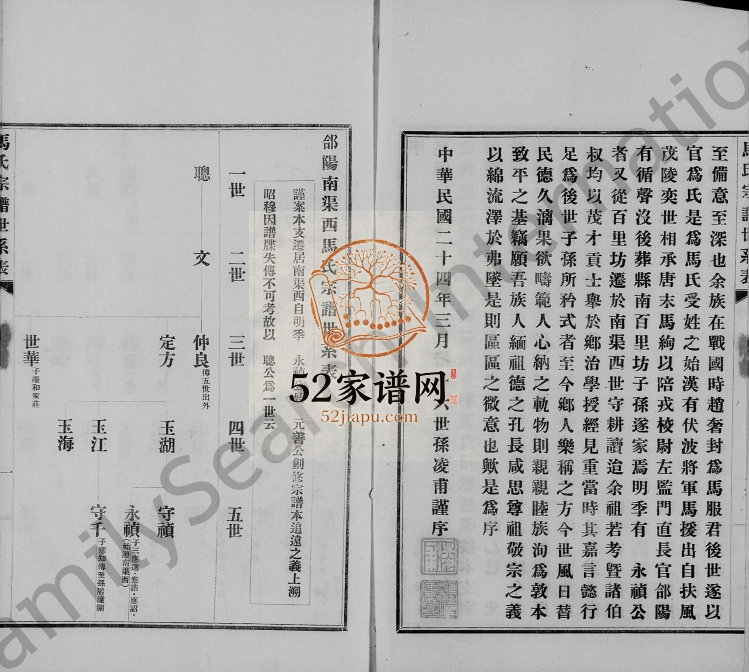 馬氏宗譜世系表
至備意至深也余族在戰國時趙奢封爲馬服君後世遂以
官爲氏是爲馬氏受姓之始漢有伏波將軍馬援出自扶風
茂陵奕世相承唐末馬絢以陪戎棱尉左監門直長官郃陽
有循聲沒後葬縣南百里坊子孫遂家焉明季有 永禎公
者又從百里坊遷於南渠西世守耕讀迨余祖若考暨諸伯
叔均以茂才貢士舉於鄉治學授經見重當時其嘉言懿行
足爲後世子孫所矜式者至今鄉人樂稱之方今世風日替
民德久漓果欲疇範人心納之軌物則親親睦族洵爲敦本
致平之基竊願吾族人緬祖德之孔長咸思尊祖敬宗之義
以綿流澤於弗墜是則區區之微意也歟是爲序
中華民國二十四年三月 六世孫凌甫謹序
郃陽南渠西馬氏宗譜世系表
謹案本支遷居南渠西自明季 永禎 元善公創修宗譜本追遠之義上溯
昭穆因譜牒失傳不可考故以 聰公爲一世云
一世 二世 三世 四世 五世
聰 文 仲良 傳五世出外
定方 玉湖 守禎
永禎 子三應選・應誥・應詔・
(始遷南渠西)
玉江 守千 子
玉海
世華 子遷和家莊
馬氏宗譜世系表
52家谱网
52jiapu.com
FamilySearch International